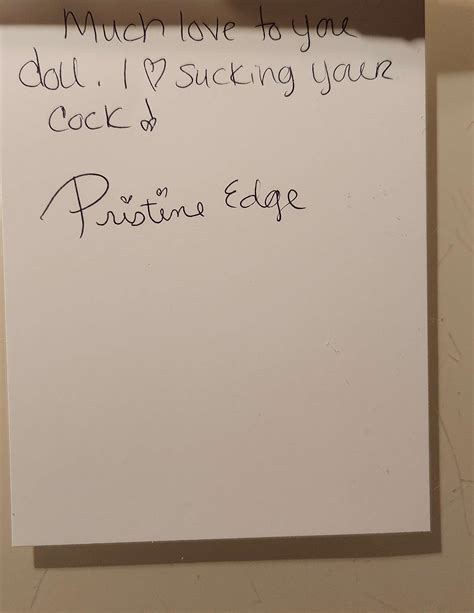 Much love to you
doll. I ♡ sucking your
cock
Pristine Edge